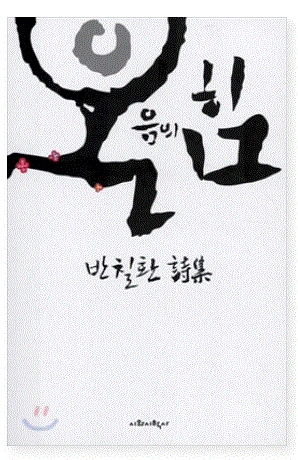 웃음의 힘
반칠환 詩集
시와시학사